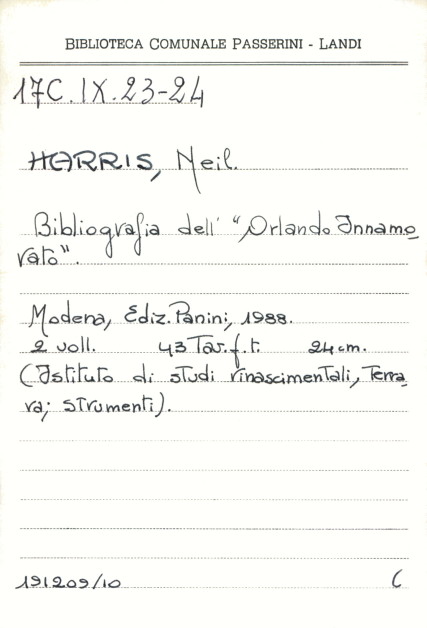 BIBLIOTECA COMUNALE PASSERINI - LANDI
17C.IX.23-24
HARRIS, Neil.
Bibliografia dell' "Orlando Innamo
rato".
Modena, Ediz. Panini, 1988.
2 voll. 43 Tav. f. t. 24 cm.
(Istituto di studi rinascimentali, Ferra
ra; strumenti).
191209/10 C